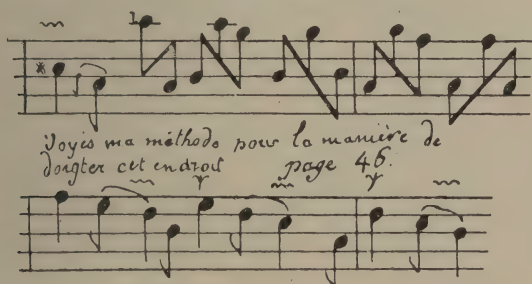 Voyés ma méthode pour la manière de
doigter cet endroit page 46.